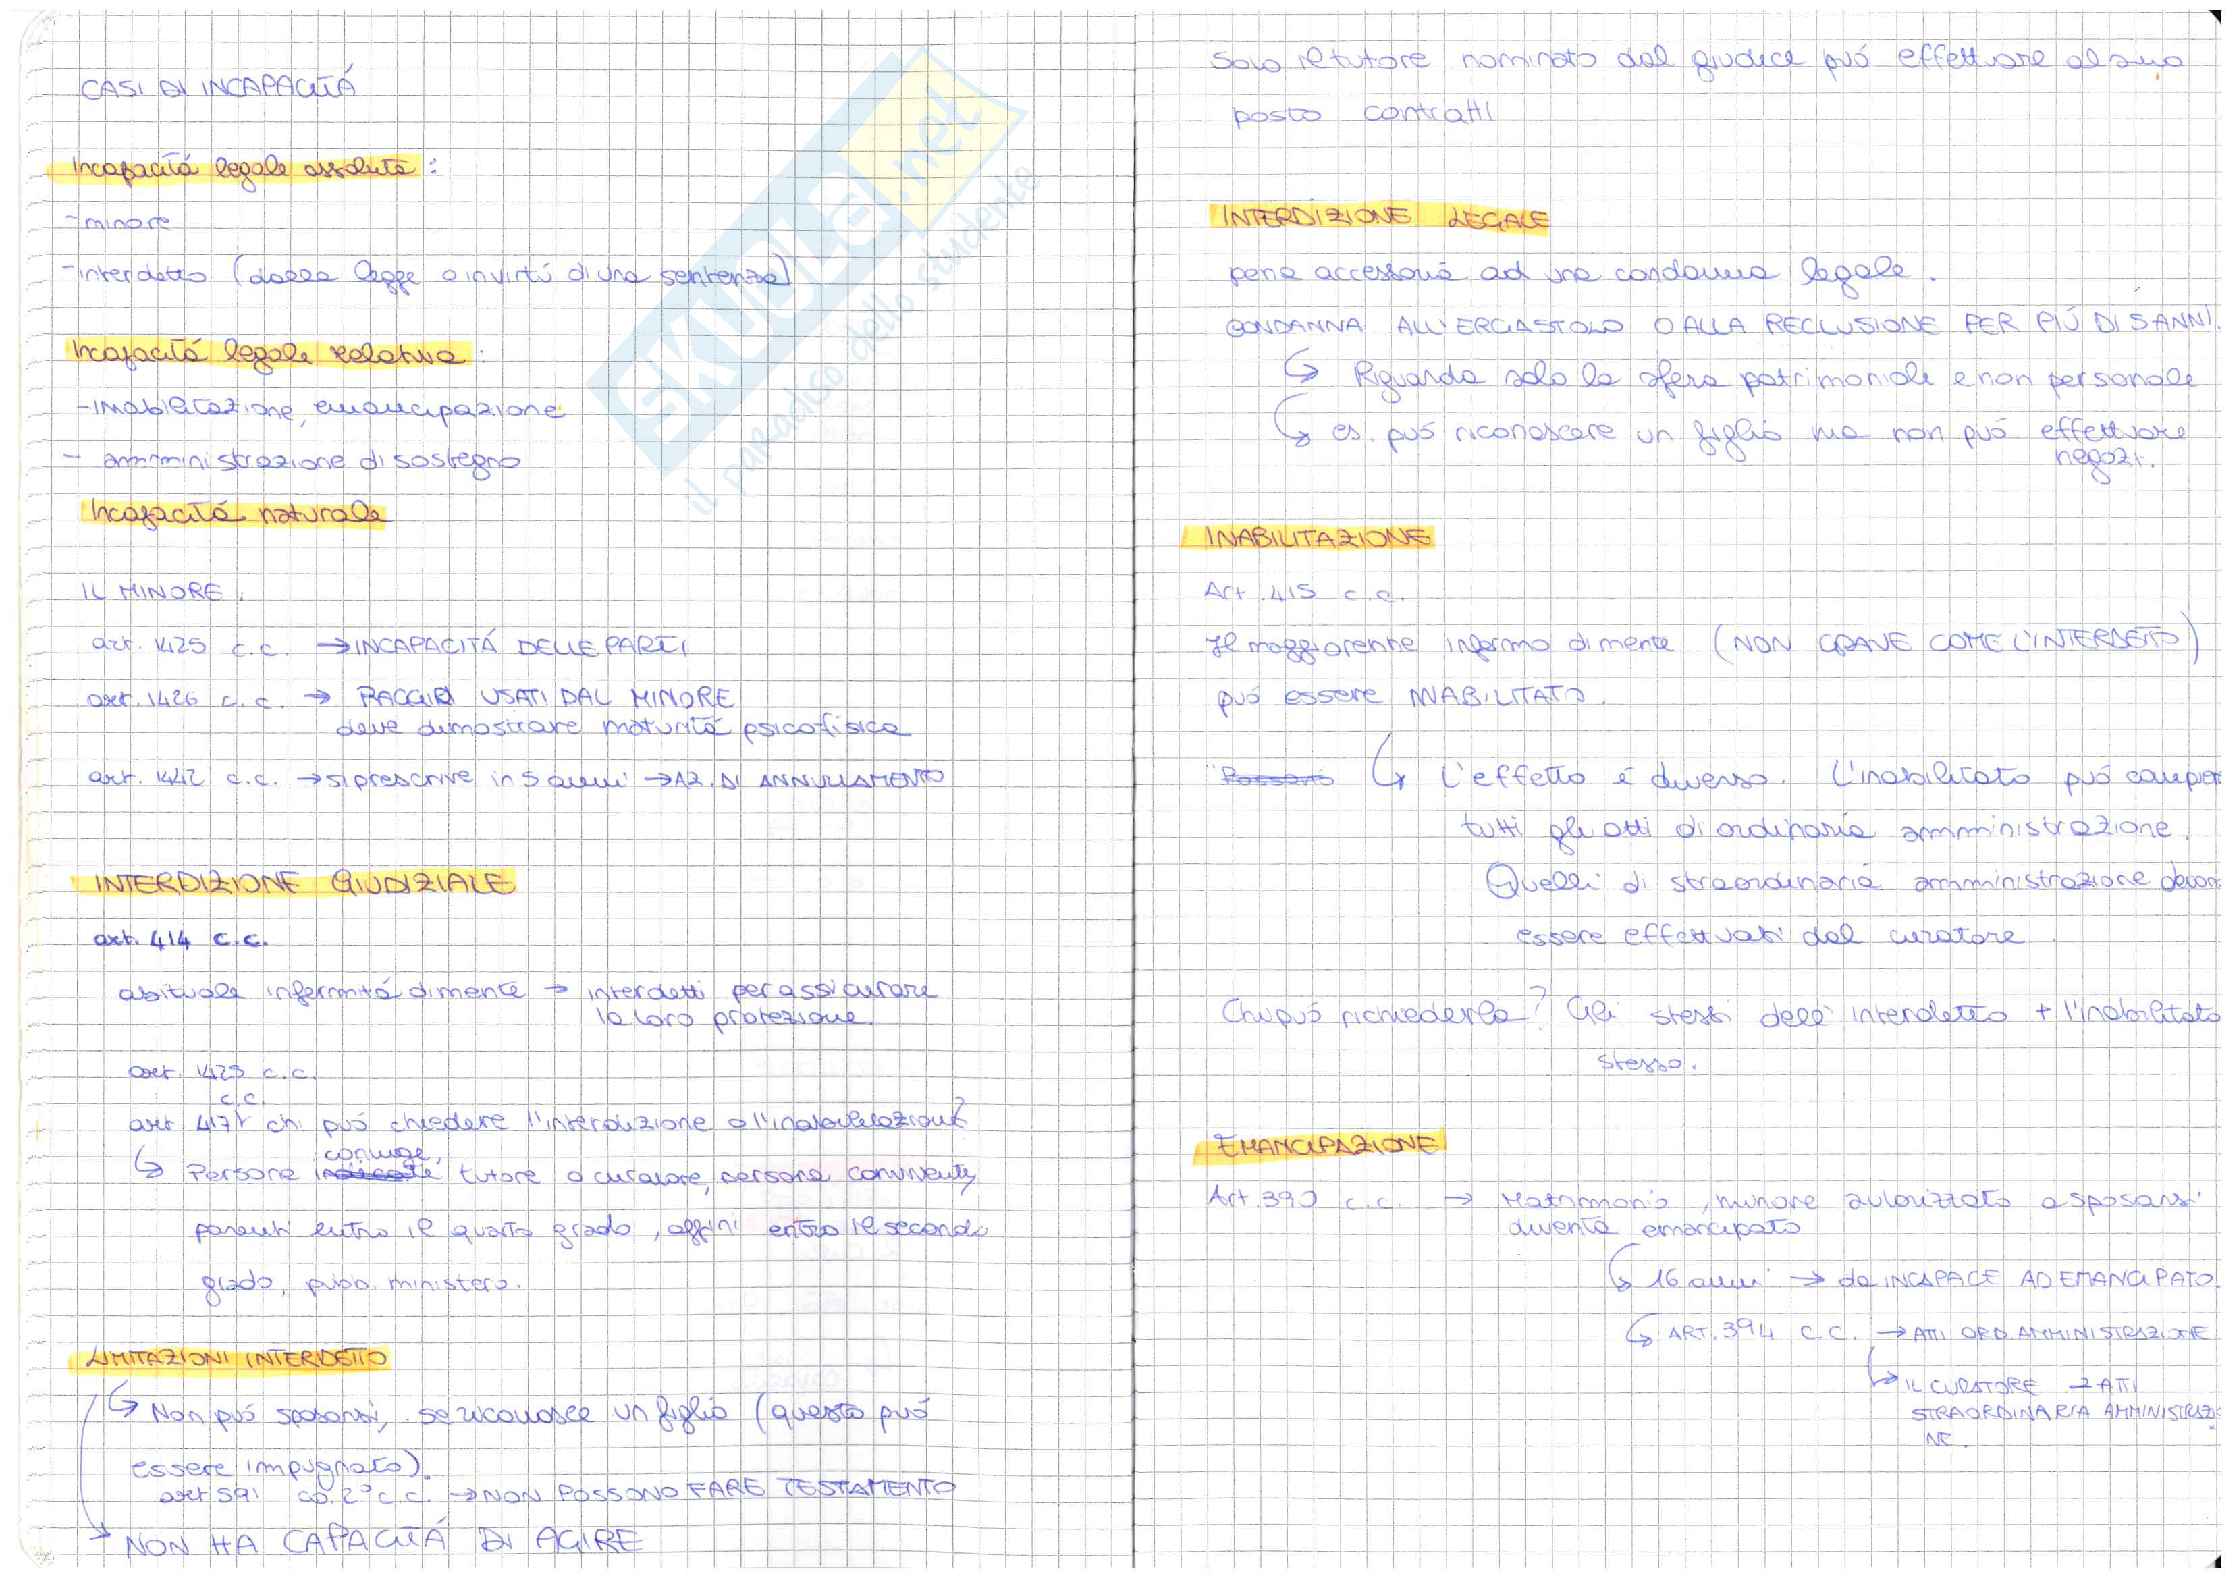 CASI DI INCAPACITÁ
Incapacitá legale assoluta :
-minore
-interdetto (dalla legge o in virtú di una sentenza)
Incapacitá legale relativa :
-inabilitazione, emancipazione
- amministrazione di sostegno
Incapacitá naturale
IL MINORE.
art. 1425 c.c. → INCAPACITÁ DELLE PARTI
art. 1426 c.c. → RAGGIRI USATI DAL MINORE
deve dimostrare maturitá psicofisica
art. 1442 c.c. → si prescrive in 5 anni → AZ. DI ANNULLAMENTO
INTERDIZIONE GIUDIZIALE
art. 414 c.c.
abituale infermitá di mente → interdetti per assicurare
la loro protezione.
art. 1425 c.c.
c.c.
art 417 chi puó chiedere l'interdizione o l'inabilitazione?
coniuge,
↳ Persona tutore o curatore, persona convivente,
parenti entro il quarto grado, affini entro il secondo
grado, pubb. ministero.
LIMITAZIONI INTERDETTO
↳ Non puó sposarsi, se riconosce un figlio (questo puó
essere impugnato).
art 591 co. 2° c.c. → NON POSSONO FARE TESTAMENTO
NON HA CAPACITÁ DI AGIRE
Solo il tutore nominato dal giudice puó effettuare al suo
posto contratti
INTERDIZIONE LEGALE
pena accessoria ad una condanna legale.
CONDANNA ALL'ERGASTOLO O ALLA RECLUSIONE PER PIÚ DI 5 ANNI.
↳ Riguarda solo la sfera patrimoniale e non personale
↳ es. puó riconoscere un figlio ma non puó effettuare
negozi.
INABILITAZIONE
Art. 415 c.c.
Il maggiorenne infermo di mente (NON GRAVE COME L'INTERDETTO)
puó essere INABILITATO.
Possono ↳ L'effetto é diverso. L'inabilitato puó compier
tutti gli atti di ordinaria amministrazione.
Quelli di straordinaria amministrazione devon
essere effettuati dal curatore
Chi puó richiederla? Gli stessi dell'interdetto + l'inabilitato
stesso.
EMANCIPAZIONE
Art. 390 c.c. → Matrimonio, minore autorizzato a sposarsi
diventa emancipato
↳ 16 anni → da INCAPACE AD EMANCIPATO.
↳ ART. 394 c.c. → ATTI ORD. AMMINISTRAZIONE
↳ IL CURATORE → ATTI
STRAORDINARIA AMMINISTRAZIO
NE.
SKUOLA.net
il paradiso dello studente